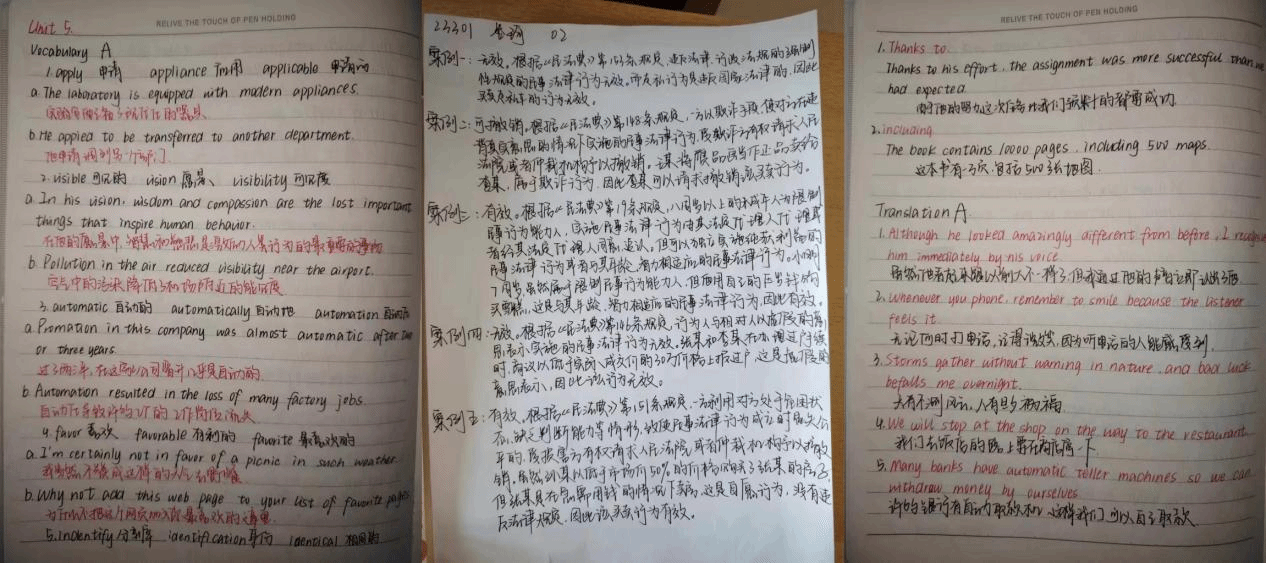 RELIVE THE TOUCH OF PEN HOLDING
Unit 5.
Vocabulary A
1. apply 申请 appliance 应用 applicable 申请的
a. The labaratory is equipped with madern appliances.
b. He appied to be transferred to another department.
他申请调到另一个部门.
2. visible 可见的 vision 愿景、 visibility 可见度
a. In his vision, wisdom and compassion are the lost important
things that inspire human behavior.
在他的愿景中,智慧和
b. Pollution in the air reduced visibility near the airport.
空气中的污染降低了机场附近的能见度
3. automatic 自动的 automatically 自动地 automation 自动
a. Promation in this company was almost automatic after two
or three years.
过了两三年,在这家公司晋升几乎是自动的.
b. Automation resulted in the loss of many factory jobs.
自动化导致许多工厂的工作岗位流失
4. favor 喜欢 favorable 有利的 favorite 最喜欢的
a. I'm certainly not in favor of a picnic in such weather.
b. Why not add this web page to your list of favorite pages
为什么不把这个网页加入你最喜欢的清单.
5. indentify identification 身份 identical 相同的
23301 02
案例一:无效。根据《民法典》第153条规定,违反法律、行政法规的强制
性规定的民事法律行为无效。 违反国家法律的,因此
买卖 的行为无效。
案例二:可撤销。根据《民法典》第148条规定,一方以欺诈手段,使对方在违
背真实意思的情况下实施的民事法律行为,受欺诈方有权请求人民
法院或者仲裁机构予以撤销。 某将赝品画当作正品卖给
查某,属于欺诈行为,因此查某可以请求撤销该买卖行为。
案例三:有效。根据《民法典》第19条规定,八周岁以上的未成年人为限制
民事行为能力人,实施民事法律行为由其法定代理人代理或
者经其法定代理人同意、追认。但可以独立实施纯获利益的
民事法律行为或者与其年龄、智力相适应的民事法律行为。小明
周岁虽然属于限制民事行为能力人,但使用自己的 钱
买 ,这是与其年龄、智力相适应的民事法律行为,因此有效。
案例四:无效。根据《民法典》第146条规定,行为人与相对人以虚假的意
思表示实施的民事法律行为无效。张某和查某在办理过户手续
时,商议以低于实际成交价的30万价格上报过户,这是虚假的
意思表示,因此该行为无效。
案例五:有效。根据《民法典》第151条规定,一方利用对方处于危困状
态、缺乏判断能力等情形,致使民事法律行为成立时显失公
平的,受损害方有权请求人民法院或者仲裁机构予以撤
销。虽然刘某以低于市场价50%的价格购买了张某的房子,
但张某是在急需用钱的情况下卖房,这是自愿行为,没有违
反法律规定,因此该买卖行为有效。
RELIVE THE TOUCH OF PEN HOLDING
1. Thanks to.
Thanks to his effort, the assignment was more successful than we
had expected.
由于他的努力,这次任务比我们预料的都要成功.
2. including
The book contains 10000 pages, including 500 maps.
这本书有一万页,包括500张地图.
Translation A
1. Although he looked amazingly different from before, I recognise
him immediately by his voice.
虽然他看起来跟以前大不一样了,但我通过他的声音立即认出了他
2. Whenever you phone, remember to smile because the listener
feels it.
无论何时打电话,记得微笑,因为听电话的人能感受到.
3. Storms gather without warning in nature, and bad luck
befalls me overnight.
天有不测风云,人有旦夕祸福.
4. We will stop at the shop on the way to the restaurant.
我们去饭店的路上要在商店停一下.
5. Many banks have automatic teller machines so we can
withdraw money by ourselves
许多银行有自动取款机,这样我们可以自己取款.